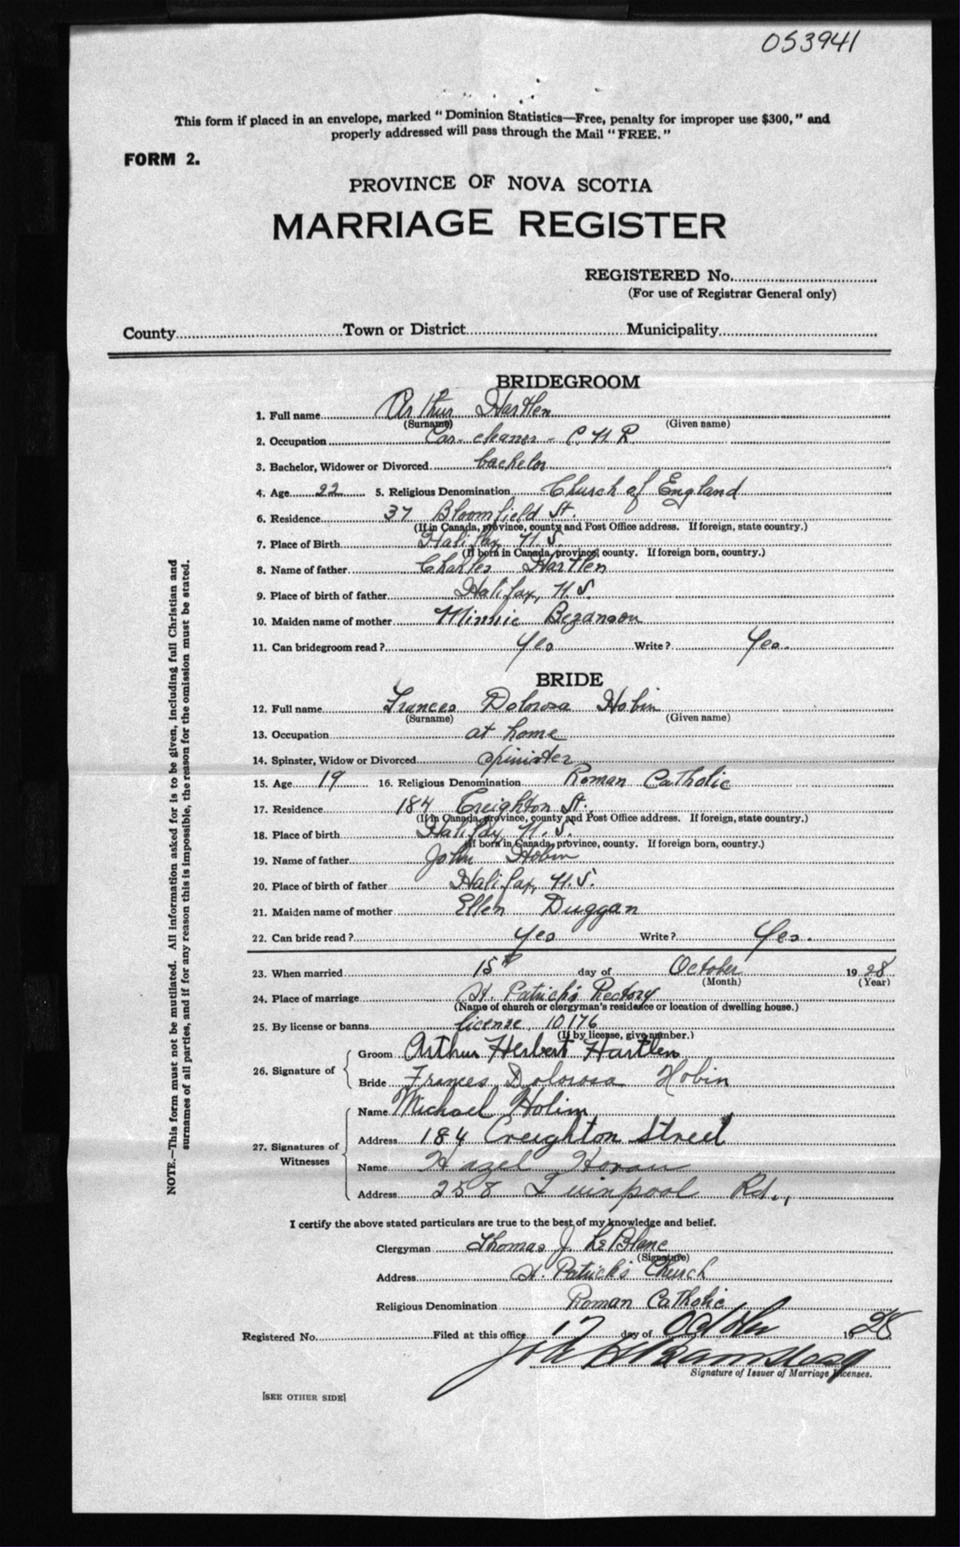 053941
This form if placed in an envelope, marked "Dominion Statistics—Free, penalty for improper use $300," and
properly addressed will pass through the Mail "FREE."
FORM 2.
PROVINCE OF NOVA SCOTIA
MARRIAGE REGISTER
REGISTERED No.
(For use of Registrar General only)
County Town or District Municipality
BRIDEGROOM
1. Full name Arthur Hartlen
(Surname) (Given name)
2. Occupation Car cleaner - C.N.R.
3. Bachelor, Widower or Divorced bachelor
4. Age 22 5. Religious Denomination Church of England
6. Residence 37 Bloomfield St.
(If in Canada, province, county and Post Office address. If foreign, state country.)
7. Place of Birth Halifax, N.S.
(If born in Canada, province, county. If foreign born, country.)
8. Name of father Charles Hartlen
9. Place of birth of father Halifax, N.S.
10. Maiden name of mother Minnie Bezanson
11. Can bridegroom read? Yes Write? Yes.
BRIDE
12. Full name Frances Dolorosa Hobin
(Surname) (Given name)
13. Occupation at home
14. Spinster, Widow or Divorced spinster
15. Age 19 16. Religious Denomination Roman Catholic
17. Residence 184 Creighton St.
(If in Canada, province, county and Post Office address. If foreign, state country.)
18. Place of birth Halifax, N.S.
(If born in Canada, province, county. If foreign born, country.)
19. Name of father John Hobin
20. Place of birth of father Halifax, N.S.
21. Maiden name of mother Ellen Duggan
22. Can bride read? Yes Write? Yes.
23. When married 15th day of October 1928
(Month) (Year)
24. Place of marriage St. Patrick's Rectory
(Name of church or clergyman's residence or location of dwelling house.)
25. By license or banns license 10176
(If by license, give number.)
26. Signature of Groom Arthur Herbert Hartlen
Bride Frances Dolorosa Hobin
27. Signatures of Witnesses Name Michael
Address 184 Creighton Street
Name Hazel Horan
Address 258 Quinpool Rd.,
I certify the above stated particulars are true to the best of my knowledge and belief.
Clergyman Thomas J. LeBlanc
(Signature)
Address St. Patrick's Church
Religious Denomination Roman Catholic
Registered No. Filed at this office 17 day of October 1928
Signature of Issuer of Marriage Licenses.
[SEE OTHER SIDE]
NOTE.—This form must not be mutilated. All information asked for is to be given, including full Christian and
surnames of all parties, and if for any reason this is impossible, the reason for the omission must be stated.